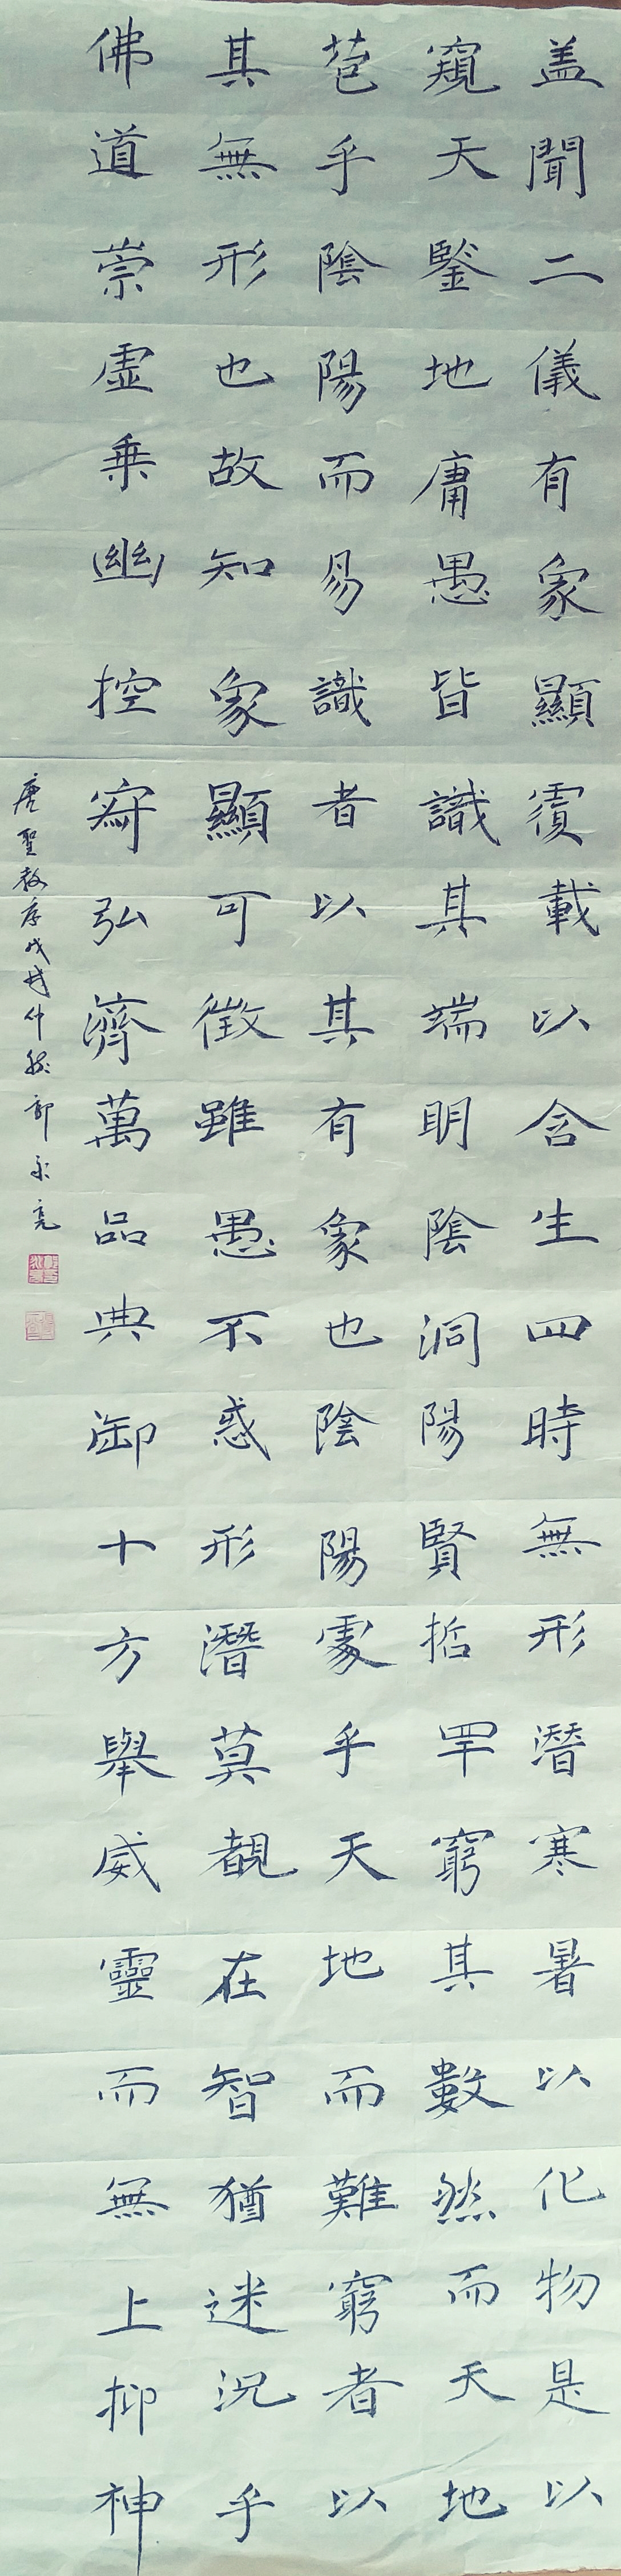 盖聞二儀有象顯覆載以含生四時無形潛寒暑以化物是以
窺天鑒地庸愚皆識其端明陰洞陽賢哲罕窮其數然而天地
苞乎陰陽而易識者以其有象也陰陽處乎天地而難窮者以
其無形也故知象顯可徵雖愚不惑形潛莫覩在智猶迷況乎
佛道崇虛乗幽控寂弘濟萬品典御十方舉威靈而無上抑神
唐聖教序戊戌仲秋郭永亮